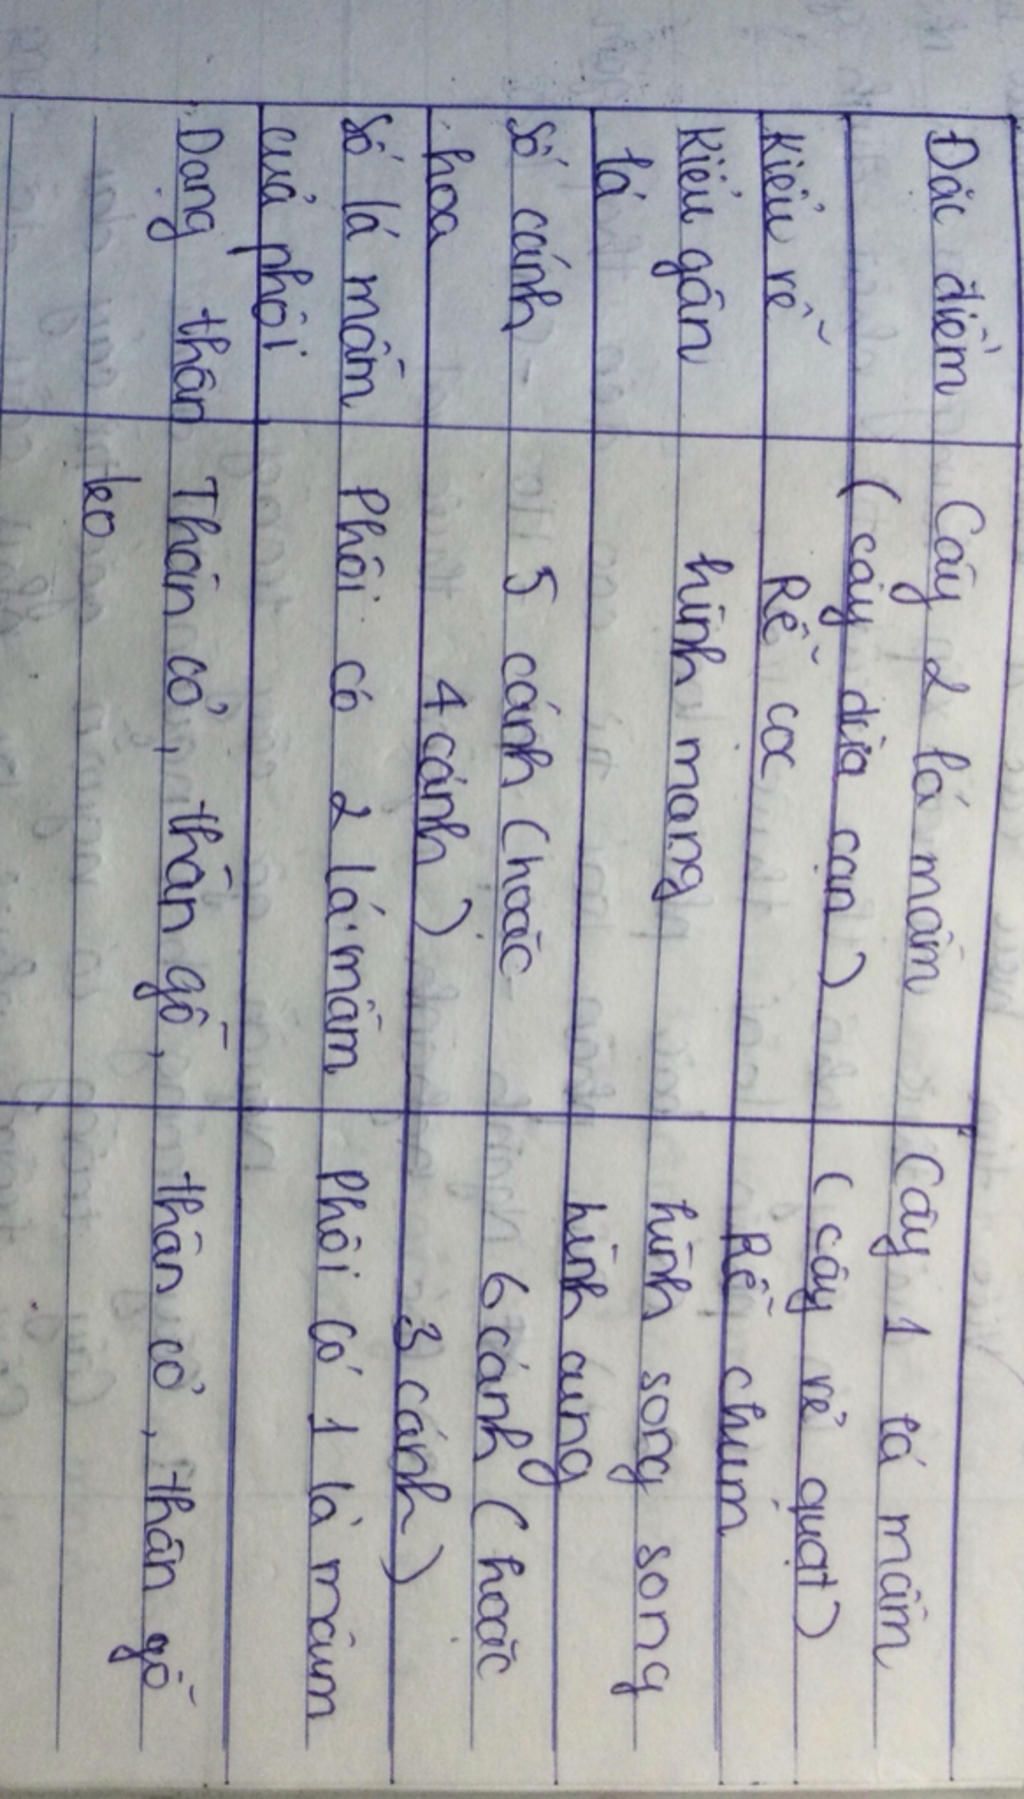 Đặc điểm Cây 2 lá mầm Cây 1 lá mầm
(cây dừa cạn) (cây rẻ quạt)
Kiểu rễ Rễ cọc Rễ chùm
Kiểu gân hình mạng hình song song
lá hình cung
Số cánh 5 cánh (hoặc 6 cánh (hoặc
hoa 4 cánh) 3 cánh)
Số lá mầm Phôi có 2 lá mầm Phôi có 1 lá mầm
của phôi
Dạng thân Thân cỏ, thân gỗ, thân cỏ, thân gỗ
leo